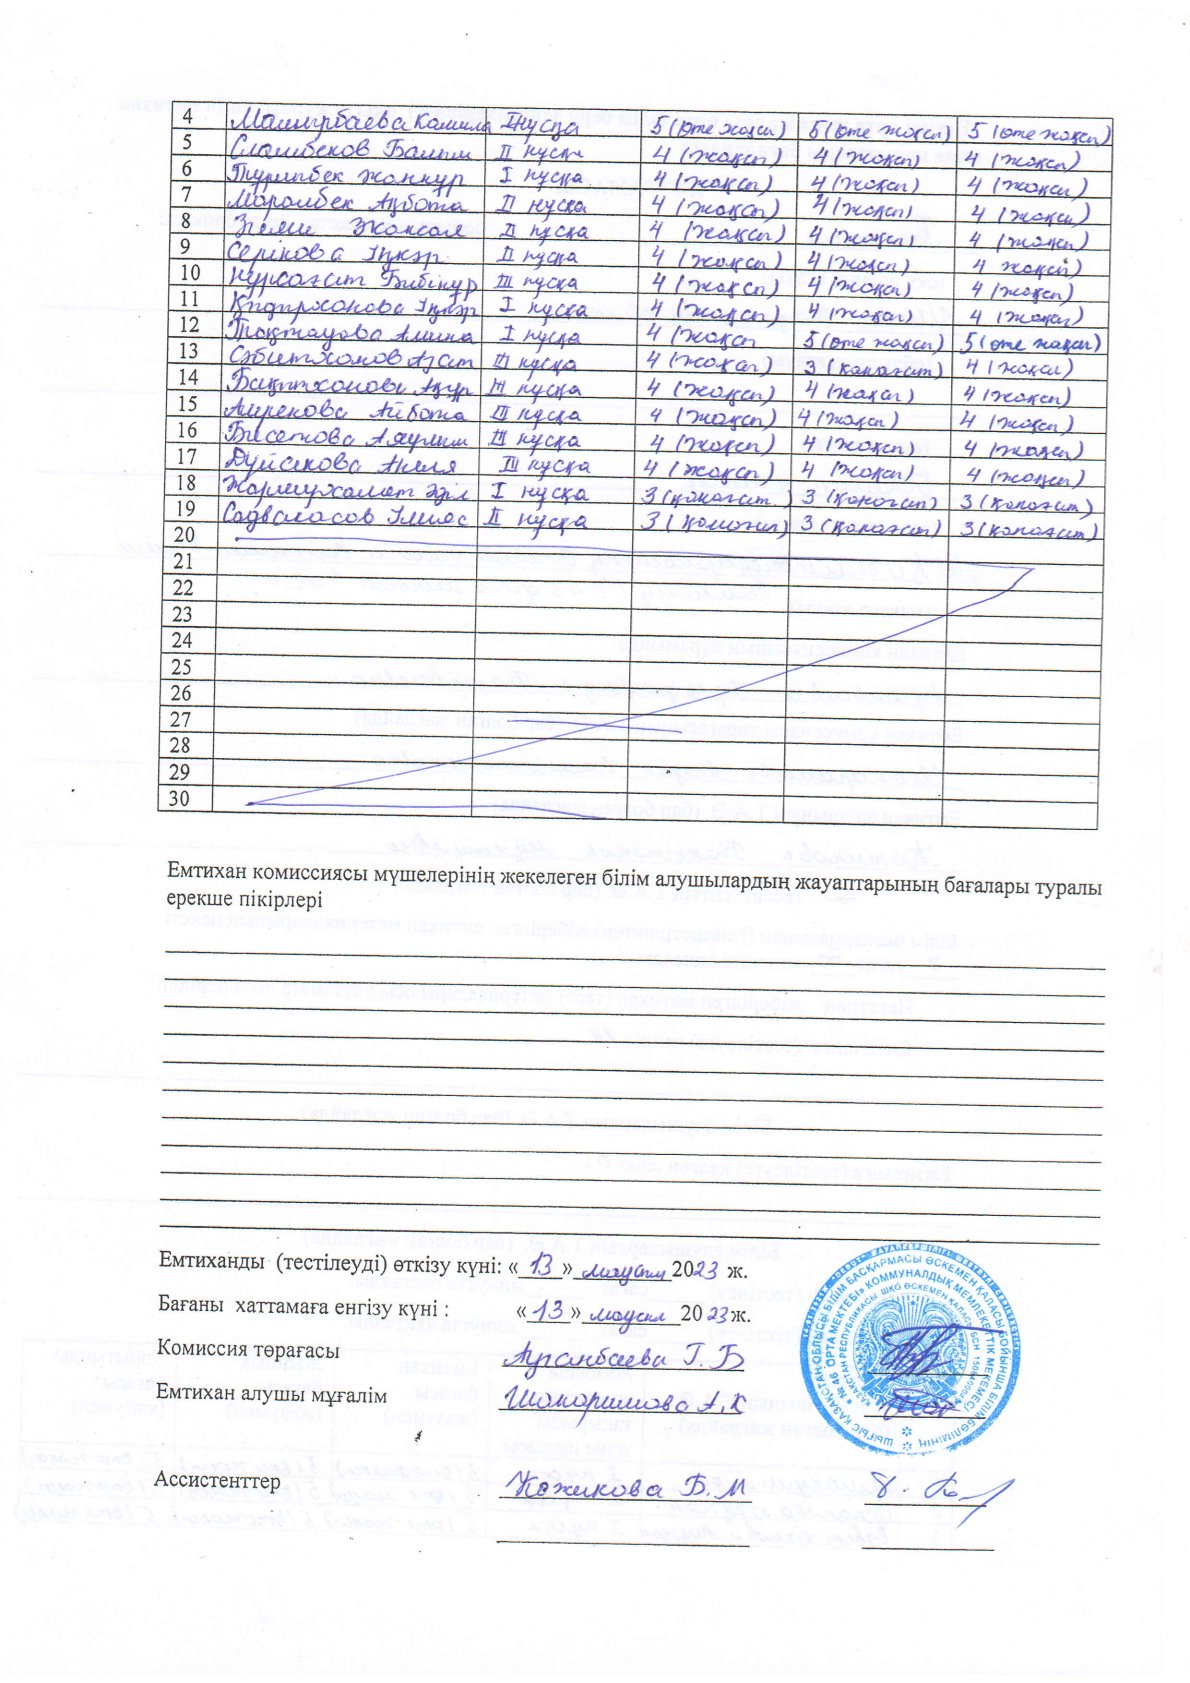 4 Машырбаева Камила II нұсқа 5 (өте жақсы) 5 (өте жақсы) 5 (өте жақсы)
5 Сламбеков II нұсқа 4 (жақсы) 4 (жақсы) 4 (жақсы)
6 I нұсқа 4 (жақсы) 4 (жақсы) 4 (жақсы)
7 Марамбек Ақбота II нұсқа 4 (жақсы) 4 (жақсы) 4 (жақсы)
8 Жансая II нұсқа 4 (жақсы) 4 (жақсы) 4 (жақсы)
9 Серікова Іңкәр II нұсқа 4 (жақсы) 4 (жақсы) 4 жақсы)
10 Нұрсағат Бибінұр III нұсқа 4 (жақсы) 4 (жақсы) 4 (жақсы)
11 Қыдырханова Іңкәр I нұсқа 4 (жақсы) 4 (жақсы) 4 (жақсы)
12 Тоқтаубва Амина I нұсқа 4 (жақсы 5 (өте жақсы) 5 (өте жақсы)
13 Азат III нұсқа 4 (жақсы) 3 (қанағат) 4 (жақсы)
14 III нұсқа 4 (жақсы) 4 (жақсы) 4 (жақсы)
15 Амренова Айбота III нұсқа 4 (жақсы) 4 (жақсы) 4 (жақсы)
16 Бисетова Аяулым III нұсқа 4 (жақсы) 4 (жақсы) 4 (жақсы)
17 Дүйсекова Анеля III нұсқа 4 (жақсы) 4 (жақсы) 4 (жақсы)
18 Жармухамет Әділ I нұсқа 3 (қанағат.) 3 (қанағат) 3 (қанағат)
19 Садвакасов Ілияс II нұсқа 3 (қанағат) 3 (қанағат) 3 (қанағат)
20
21
22
23
24
25
26
27
28
29
30
Емтихан комиссиясы мүшелерінің жекелеген білім алушылардың жауаптарының бағалары туралы
ерекше пікірлері
Емтиханды (тестілеуді) өткізу күні: «13» маусым 2023 ж.
Бағаны хаттамаға енгізу күні : «13» маусым 2023 ж.
Комиссия төрағасы Ауганбаева Г.Б
Емтихан алушы мұғалім Шакаримова А.К
Ассистенттер Кожикова Б.М